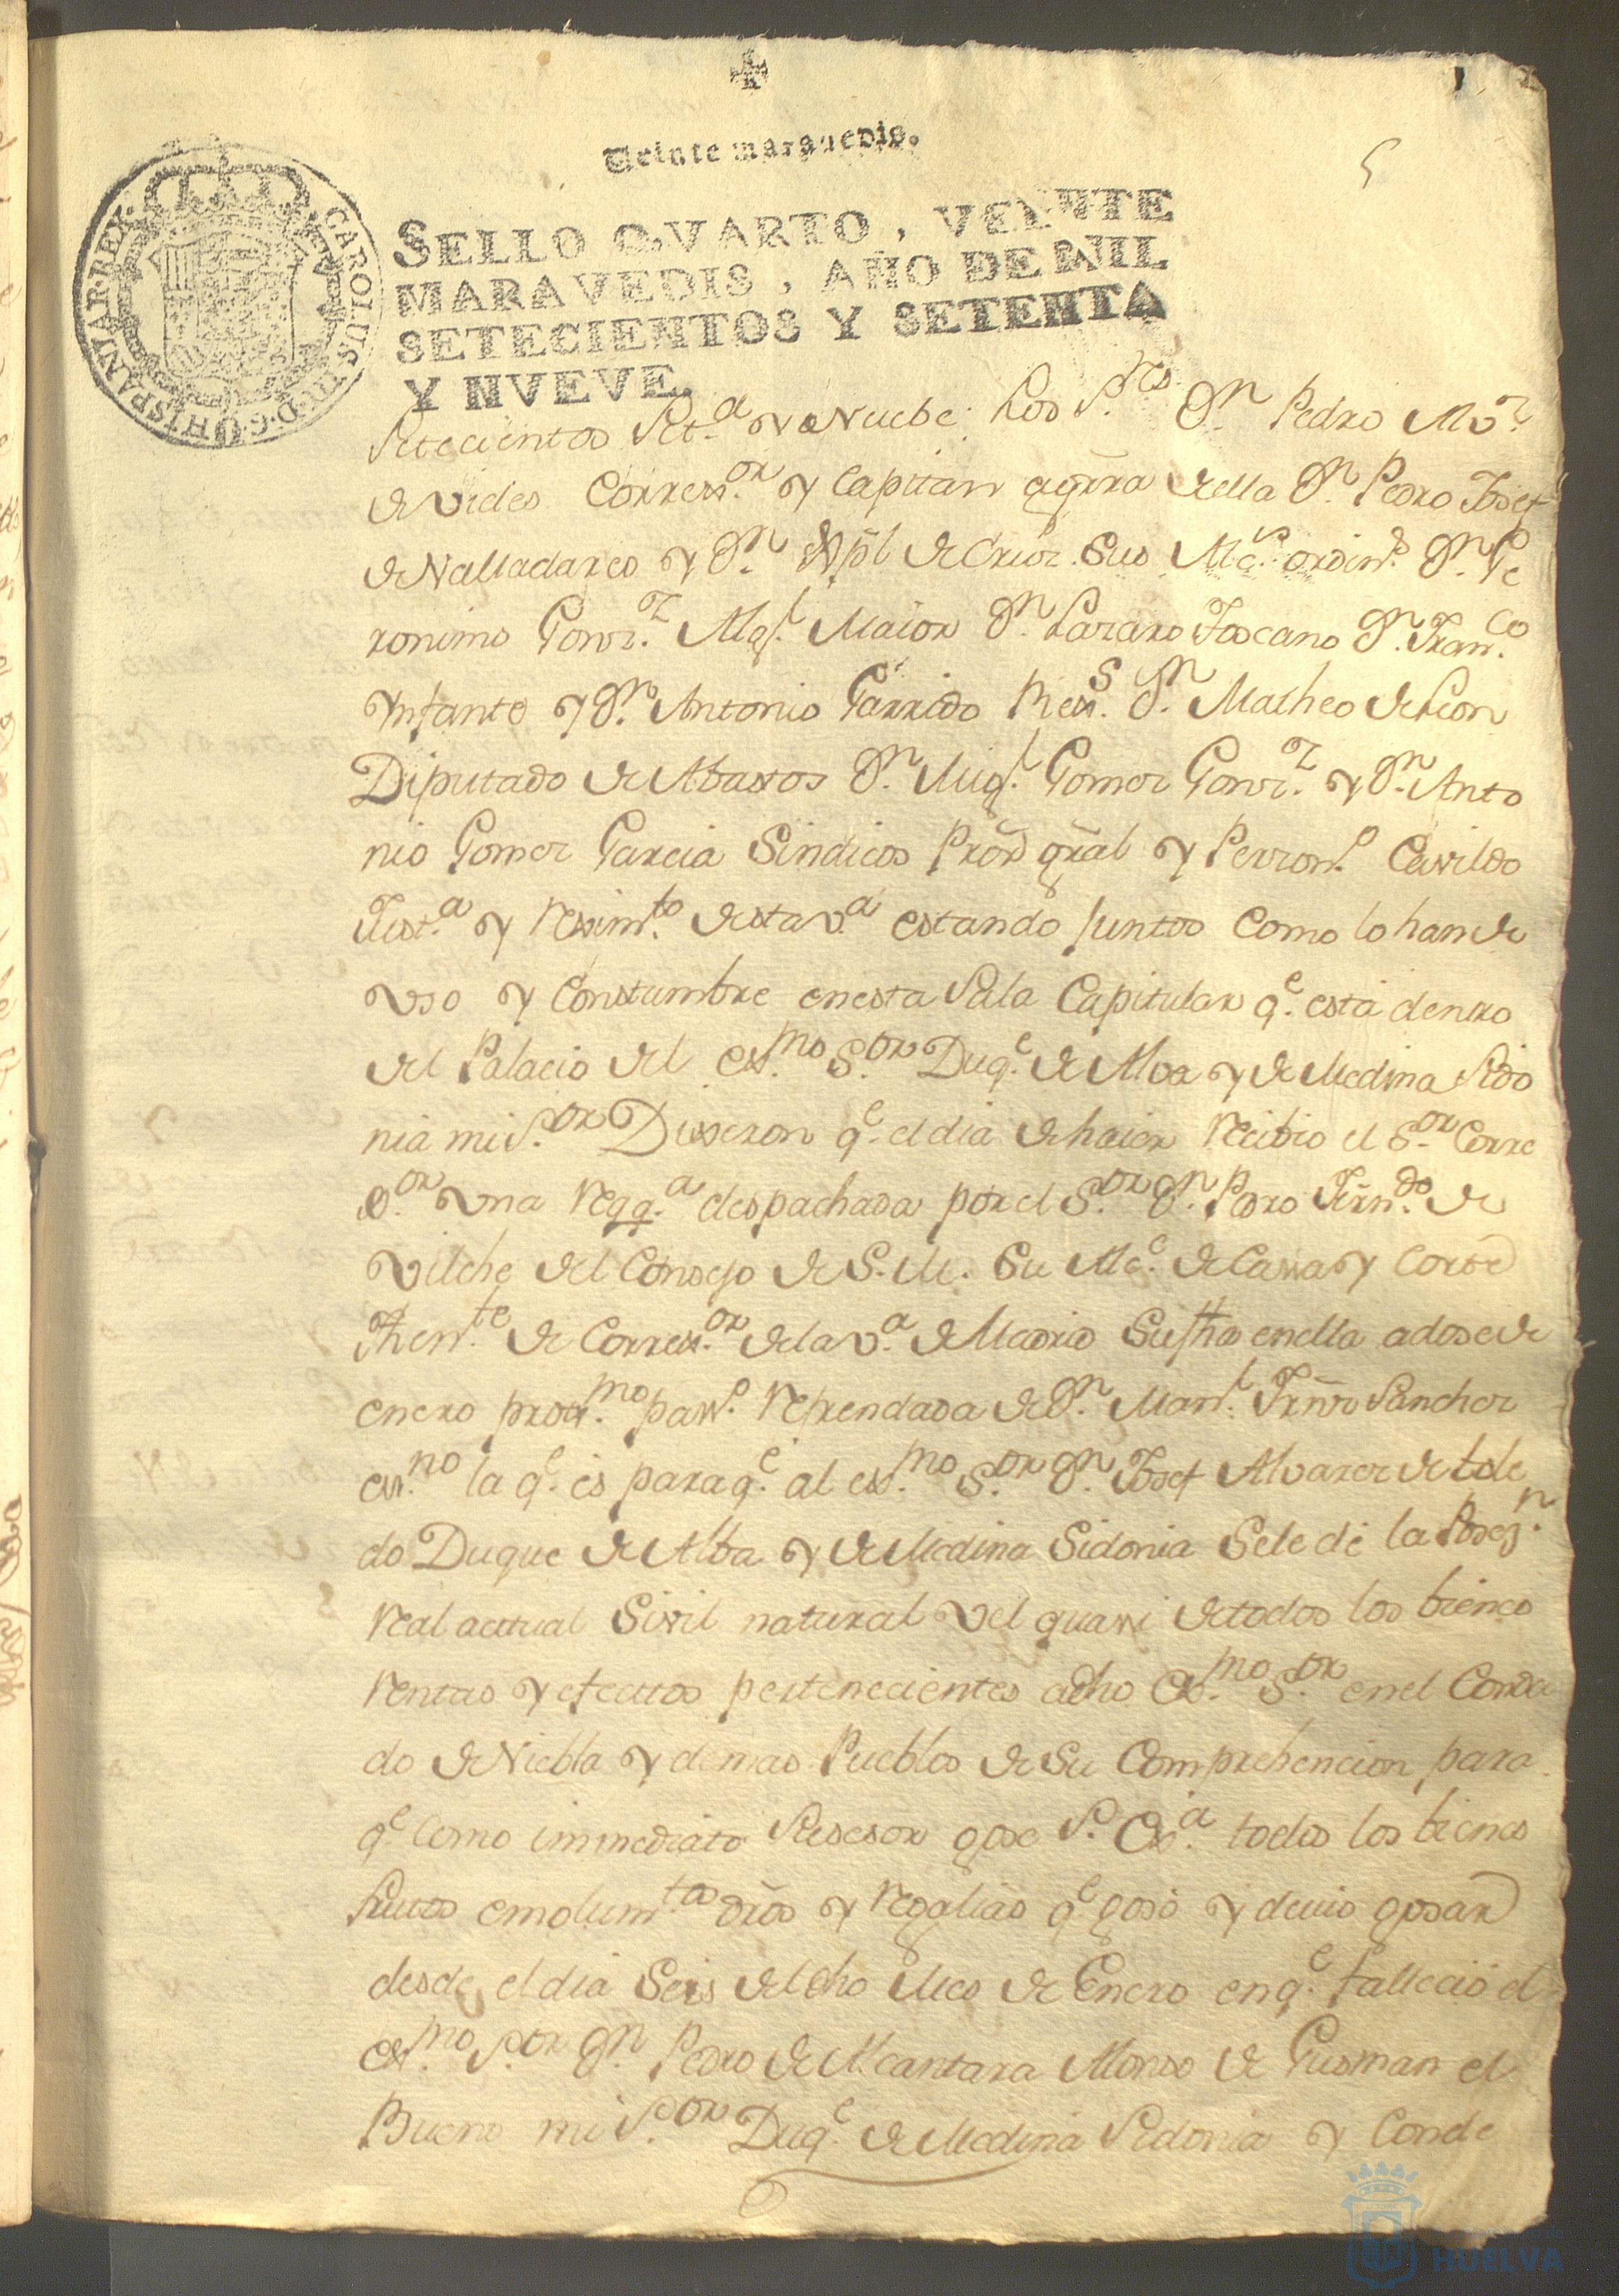 Veinte maravedis.
SELLO QVARTO, VEINTE
MARAVEDIS, AÑO DE MIL
SETECIENTOS Y SETENTA
Y NVEVE.
CAROLUS III D.G. HISPANIAR REX
Setecientos Set.ª y Nuebe: Los S.res D.n Pedro
de Vides Correx.or y Capitan aguerra della D.n Pedro Josef
de Valladares y D.n de Cruz Sus Alc.s ordin.s D.n Ge
ronimo Gonz.z Alg.l Maior D.n Lazaro Toscano D.n Fran.co
Infante y D.n Antonio Garrido Rex.s D.n Matheo de Leon
Diputado de Abastos D.n Mig.l Gomez Gonz.z y D.n Anto
nio Gomez Garcia Sindicos Prōr gral y Person.o Cavildo
Just.ª y Rexim.to desta v.ª estando juntos como lo han de
vso y Constumbre en esta Sala Capitular q.e està dentro
del Palacio del ex.mo S.or Duq.e de Alva y de Medina Sido
nia mi S.or Dixeron q.e el dia de haier Recibio el S.or Corre
x.or vna Reqq.ª despachada por el S.or D.n Pedro Fern.do de
Vilche del Consejo de S. M. Su Alc.e de Cassa y Corte
Then.te de Correx.or de la v.ª de Madrid Su fha en ella a dose de
enero prox.mo pass.o Reprendada de D.n Man.l Frnz Sanchez
ess.no la q.e es para q.e al ex.mo S.or D.n Josef Alvarez de tole
do Duque de Alba y de Medina Sidonia Se le dè la Poses.n
Real actual Sivil natural vel quasi de todos los bienes
Rentas y efectos pertenecientes adho Ex.mo S.or en el Conda
do de Niebla y demas Pueblos de Su Comprehencion para
q.e como immediato Subsesor gose S. Ex.ª todos los bienes
frutos emolum.tos dros y Regalias q.e gosò y devio gosar
desde el dia Seis del dho Mes de Enero en q.e falleciò el
Ex.mo S.or D.n Pedro de Alcantara Alonso de Gusman el
Bueno mi S.or Duq.e de Medina Sidonia y Conde
HUELVA